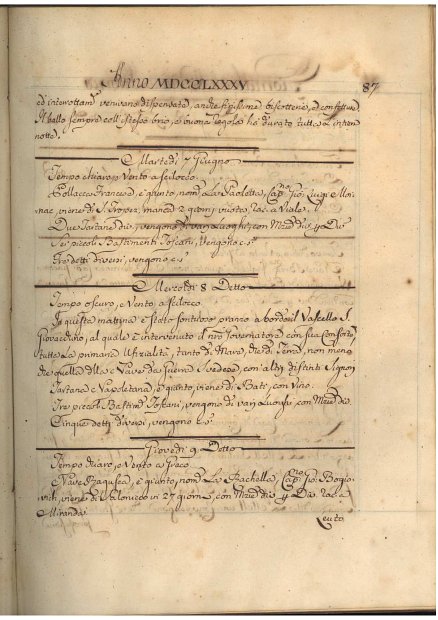 Anno MDCCLXXXV 87
ed interottam venivano dispensate, anche finissime biscotterie, e confetture
Il ballo sempre coll'istesso brio, e buona regola hà durato tutta la intera
notte.
Martedì 7 Giugno
Tempo chiaro, e Vento a Scilocco.
Pollacca Francese, è giunta, nom La Paoletta, Cap.no Gio: Luigi
nac, viene di S. Tropez, manca 2 giorni vuota, rac. a Viale.
Due Tartane div, vengono di varj Luoghi, con Mad div. p Div.
Sei piccoli Bastimenti Toscani, vengono c. s.
Tre detti diversi, vengono c. s.
Mercoldì 8 Detto
Tempo oscuro, e Vento a Scilocco.
In questa mattina è stato sontuoso pranzo a bordo il Vascello S.
Giovacchino, al quale è intervenuto il nro Governatore con sua Consorte,
tutta la primaria Ufizialità, tanto di Mare, che di Terra, non meno
che quella della Nave da guerra Svedese, con altri distinti Signori
Tartana Napoletana, è giunta, viene di Bari, con Vino.
Tre piccoli Bastim Toscani, vengono di varj Luoghi, con Mad div.
Cinque detti diversi, vengono c. s.
Giovedì 9 Detto
Tempo chiaro, e Vento a
Nave Ragusea, è giunta, nom La Rachella, Cap.no Gio: Bogio
vich, viene di Salonicco in 27 giorni, con Mad div. p Div. rac. a
Miranda.
Leuto